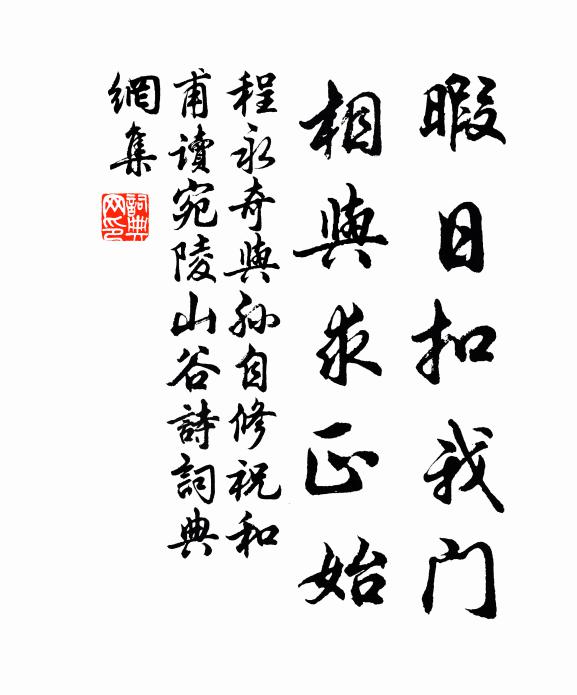 暇日扣我门
相與求正始
程永奇與孙自修祝和
甫讀宛陵山谷詩詞典
網集
詞典网印